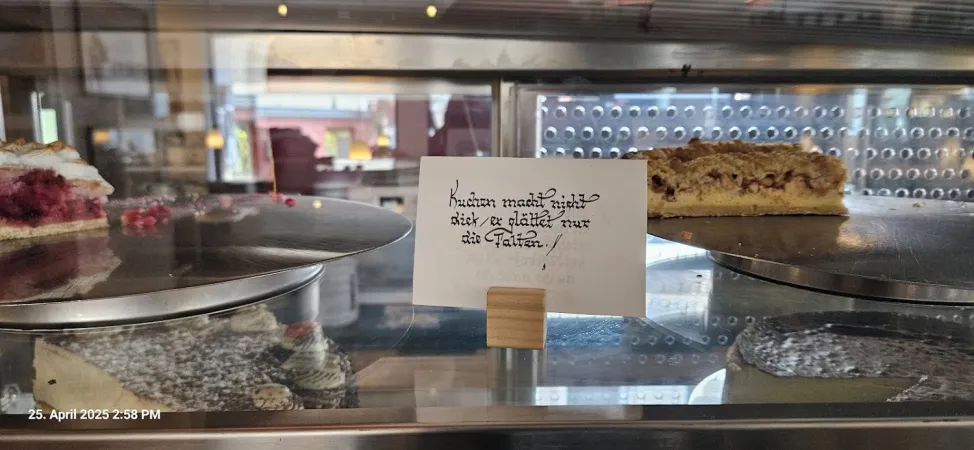 Kuchen macht nicht
dick, er glättet nur
die Falten!
25. April 2025 2:58 PM